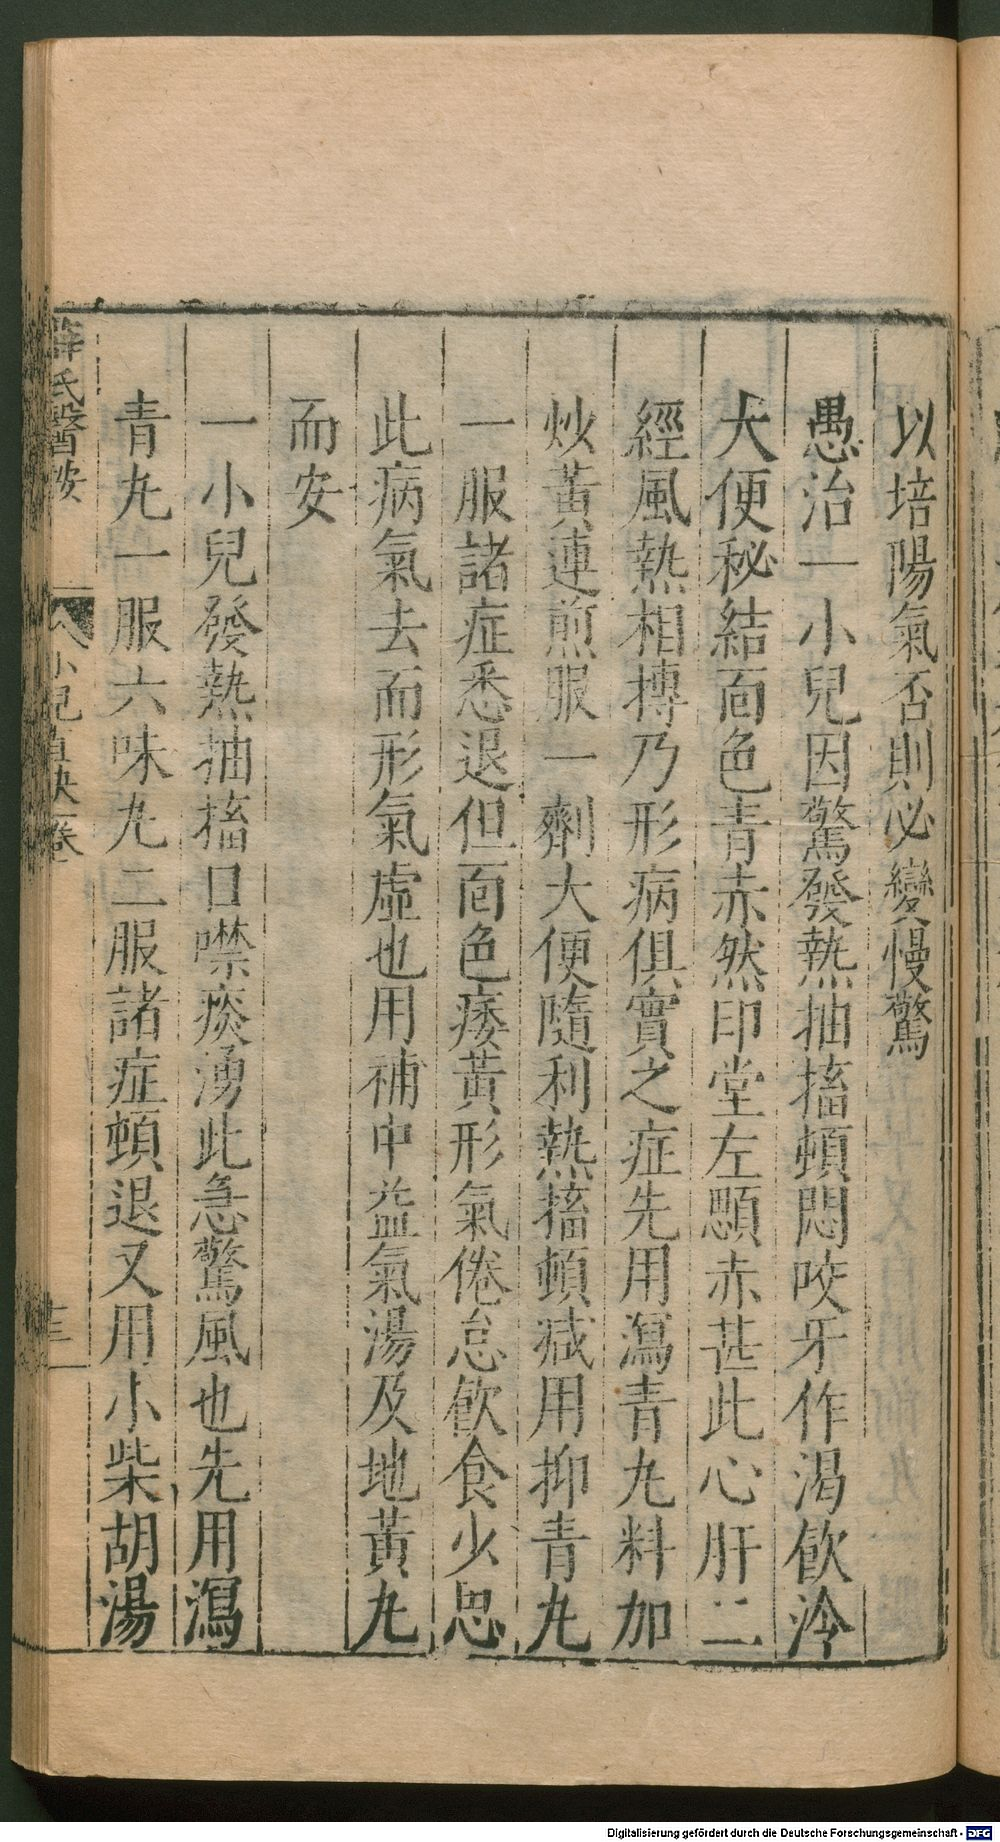 以培陽氣否則必變慢驚
愚治一小兒因驚發熱抽搐頓悶咬牙作渴飲冷
大便秘結面色青赤然印堂左顋赤甚此心肝二
經風熱相搏乃形病俱實之症先用瀉青丸料加
炒黃連煎服一劑大便隨利熱搐頓減用抑青丸
一服諸症悉退但面色痿黃形氣倦怠飲食少思
此病氣去而形氣虛也用補中益氣湯及地黃丸
而安
一小兒發熱抽搐口噤痰湧此急驚風也先用瀉
青丸一服六味丸二服諸症頓退又用小柴胡湯
薛氏醫按
小兒直訣卷
十三
Digitalisierung gefördert durch die Deutsche Forschungsgemeinschaft - DFG